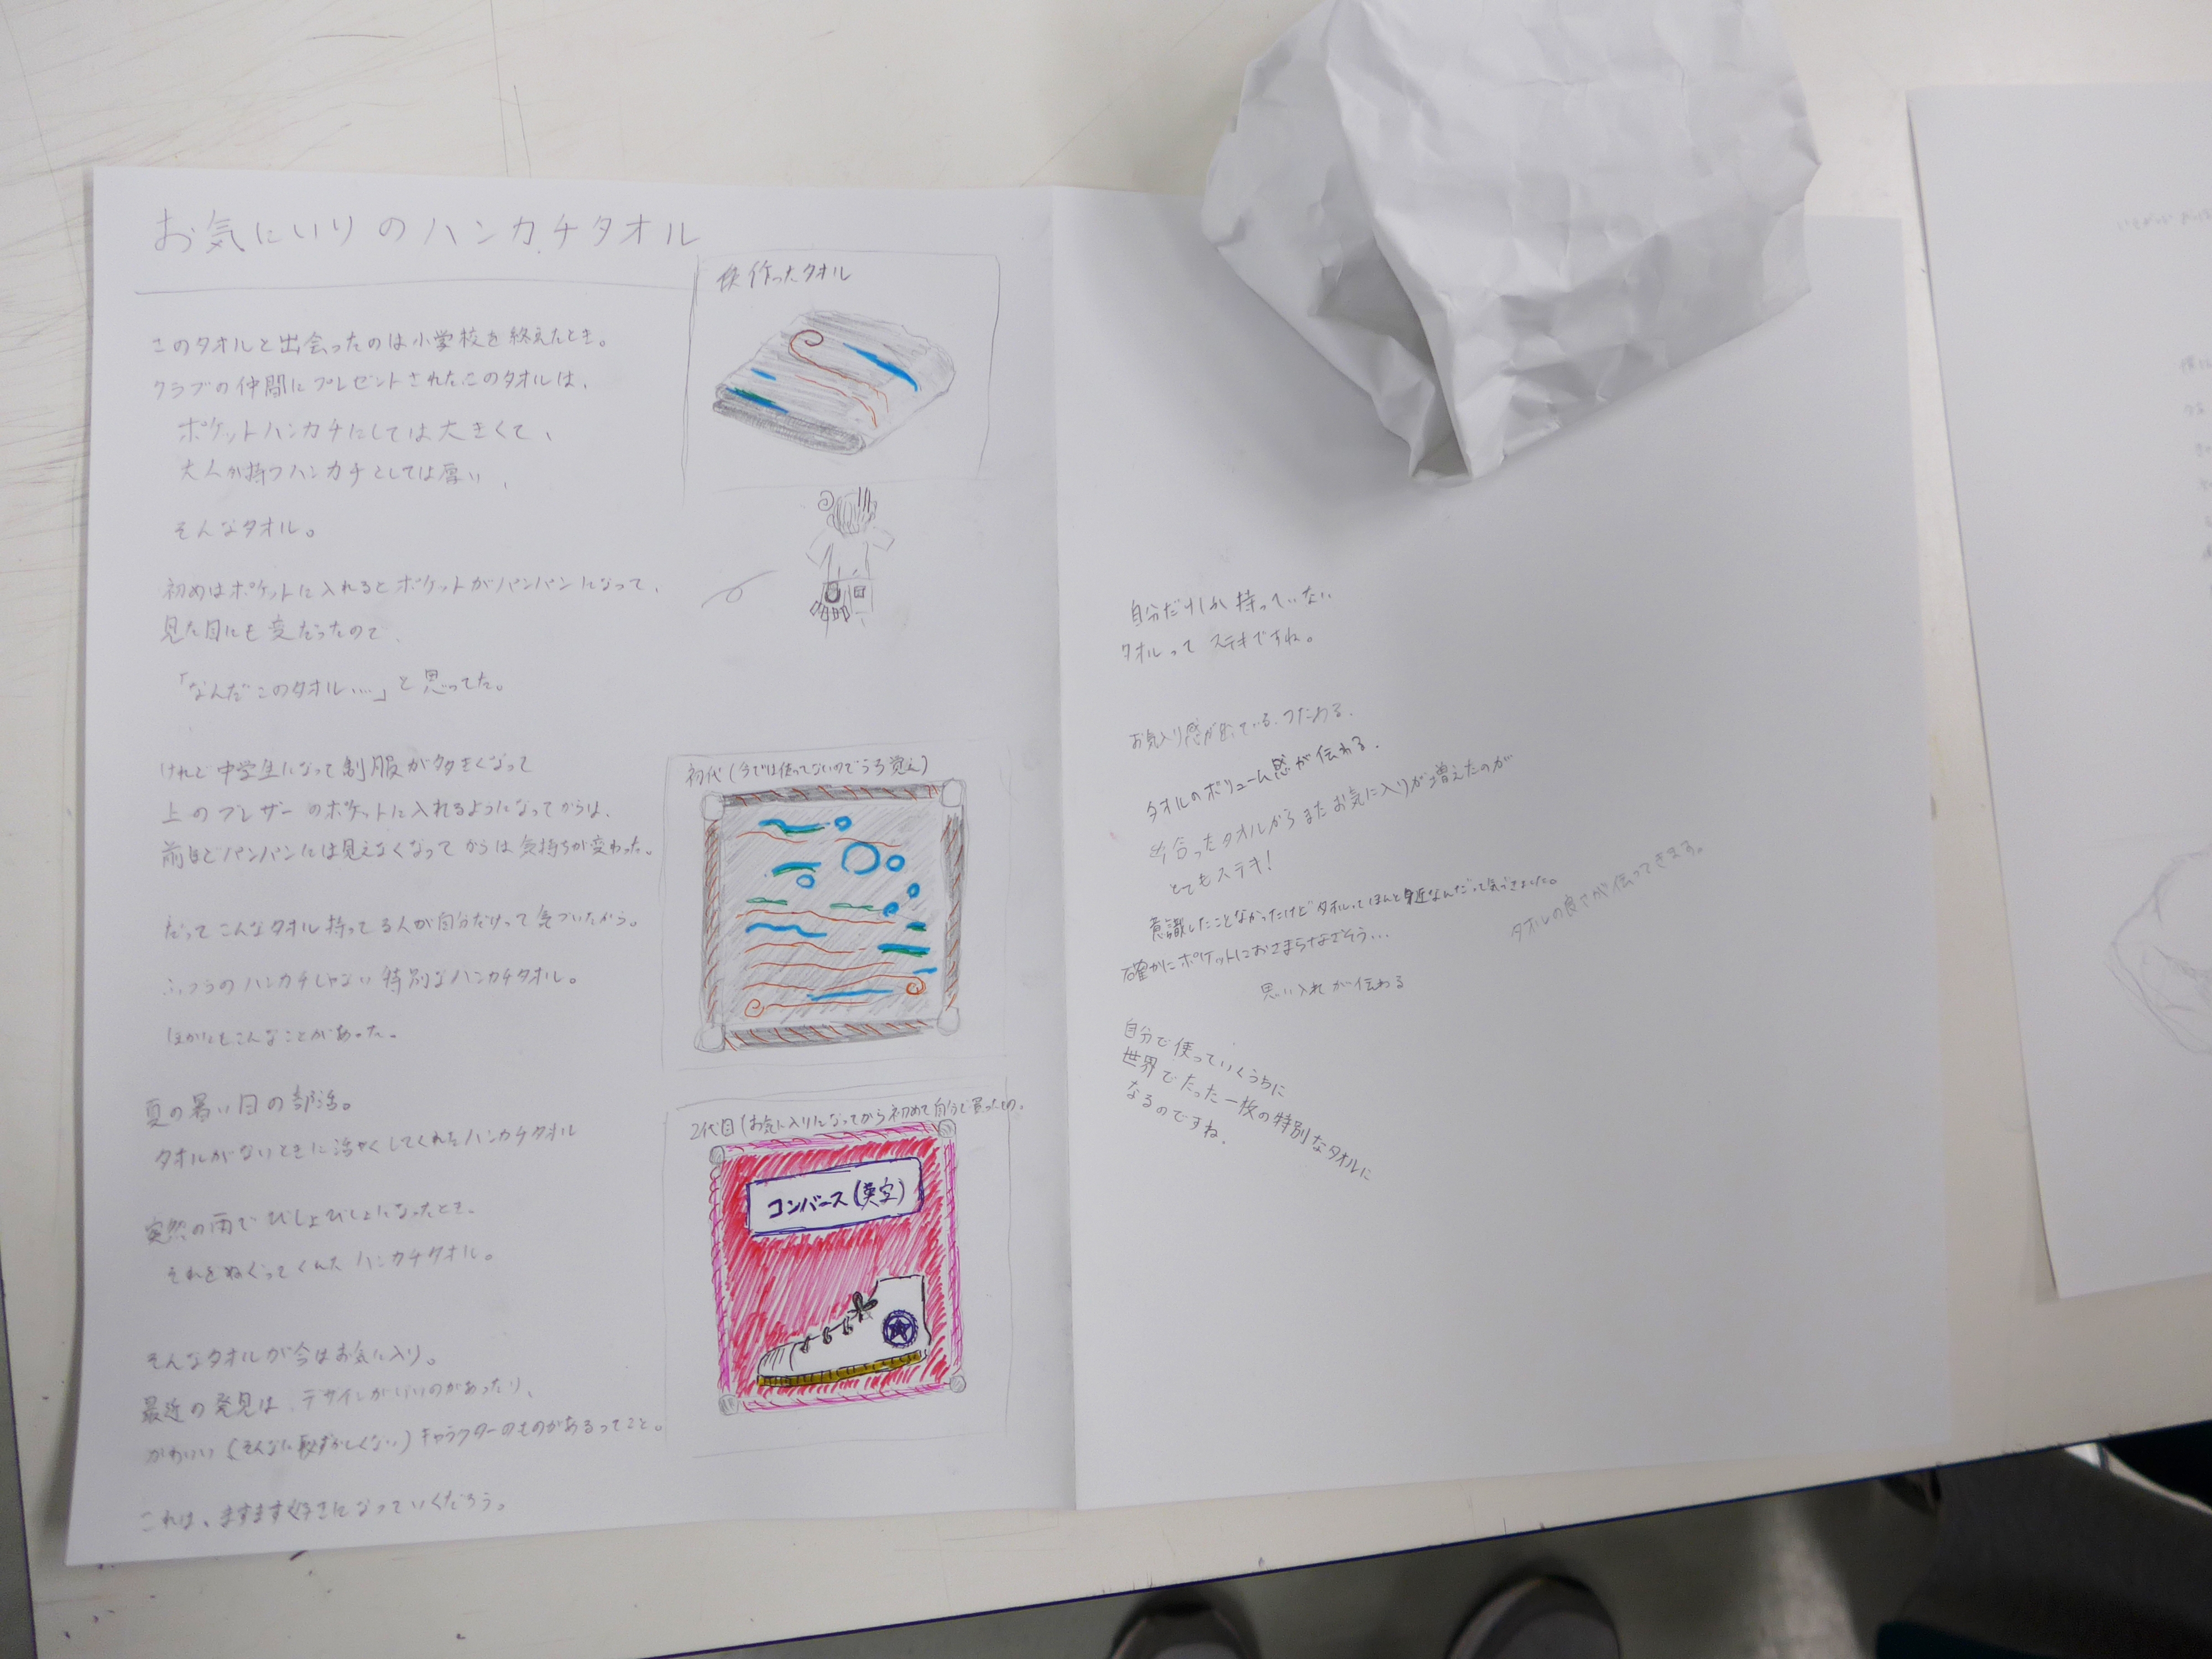 お気にいりのハンカチタオル
このタオルと出会ったのは小学校を終えたとき。
クラブの仲間にプレゼントされたこのタオルは、
ポケットハンカチにしては大きくて、
大人が持つハンカチとしては厚い、
そんなタオル。
初めはポケットに入れるとポケットがパンパンになって、
見た目にも変だったので、
「なんだこのタオル……」と思ってた。
けれど中学生になって制服が大きくなって
上のブレザーのポケットに入れるようになってからは、
前ほどパンパンには見えなくなってからは気持ちが変わった。
だってこんなタオル持ってる人が自分だけって気づいたから。
ふつうのハンカチじゃない特別なハンカチタオル。
ほかにもこんなことがあった。
夏の暑い日の部活。
タオルがないときに活やくしてくれたハンカチタオル
突然の雨でびしょびしょになったとき。
それをぬぐってくれたハンカチタオル。
そんなタオルが今はお気に入り。
最近の発見は、デザインがいいのがあったり、
かわいい(そんなに恥ずかしくない)キャラクターのものがあるってこと。
これは、ますます好きになっていくだろう。
作ったタオル
初代(今では使ってないのでうろ覚え)
2代目(お気に入りになってから初めて自分で買ったもの。
コンバース(英字)
自分だけしか持っていない
タオルって ステキですね。
お気入り感が出ている。つたわる。
タオルのボリューム感が伝わる。
出合ったタオルからまたお気に入りが増えたのが
とてもステキ!
意識したことなかったけどタオルってほんと身近なんだって気づきました。
確かにポケットにおさまらなさそう…
タオルの良さが伝ってきます。
思い入れが伝わる
自分で使っていくうちに
世界でたった一枚の特別なタオルに
なるのですね。